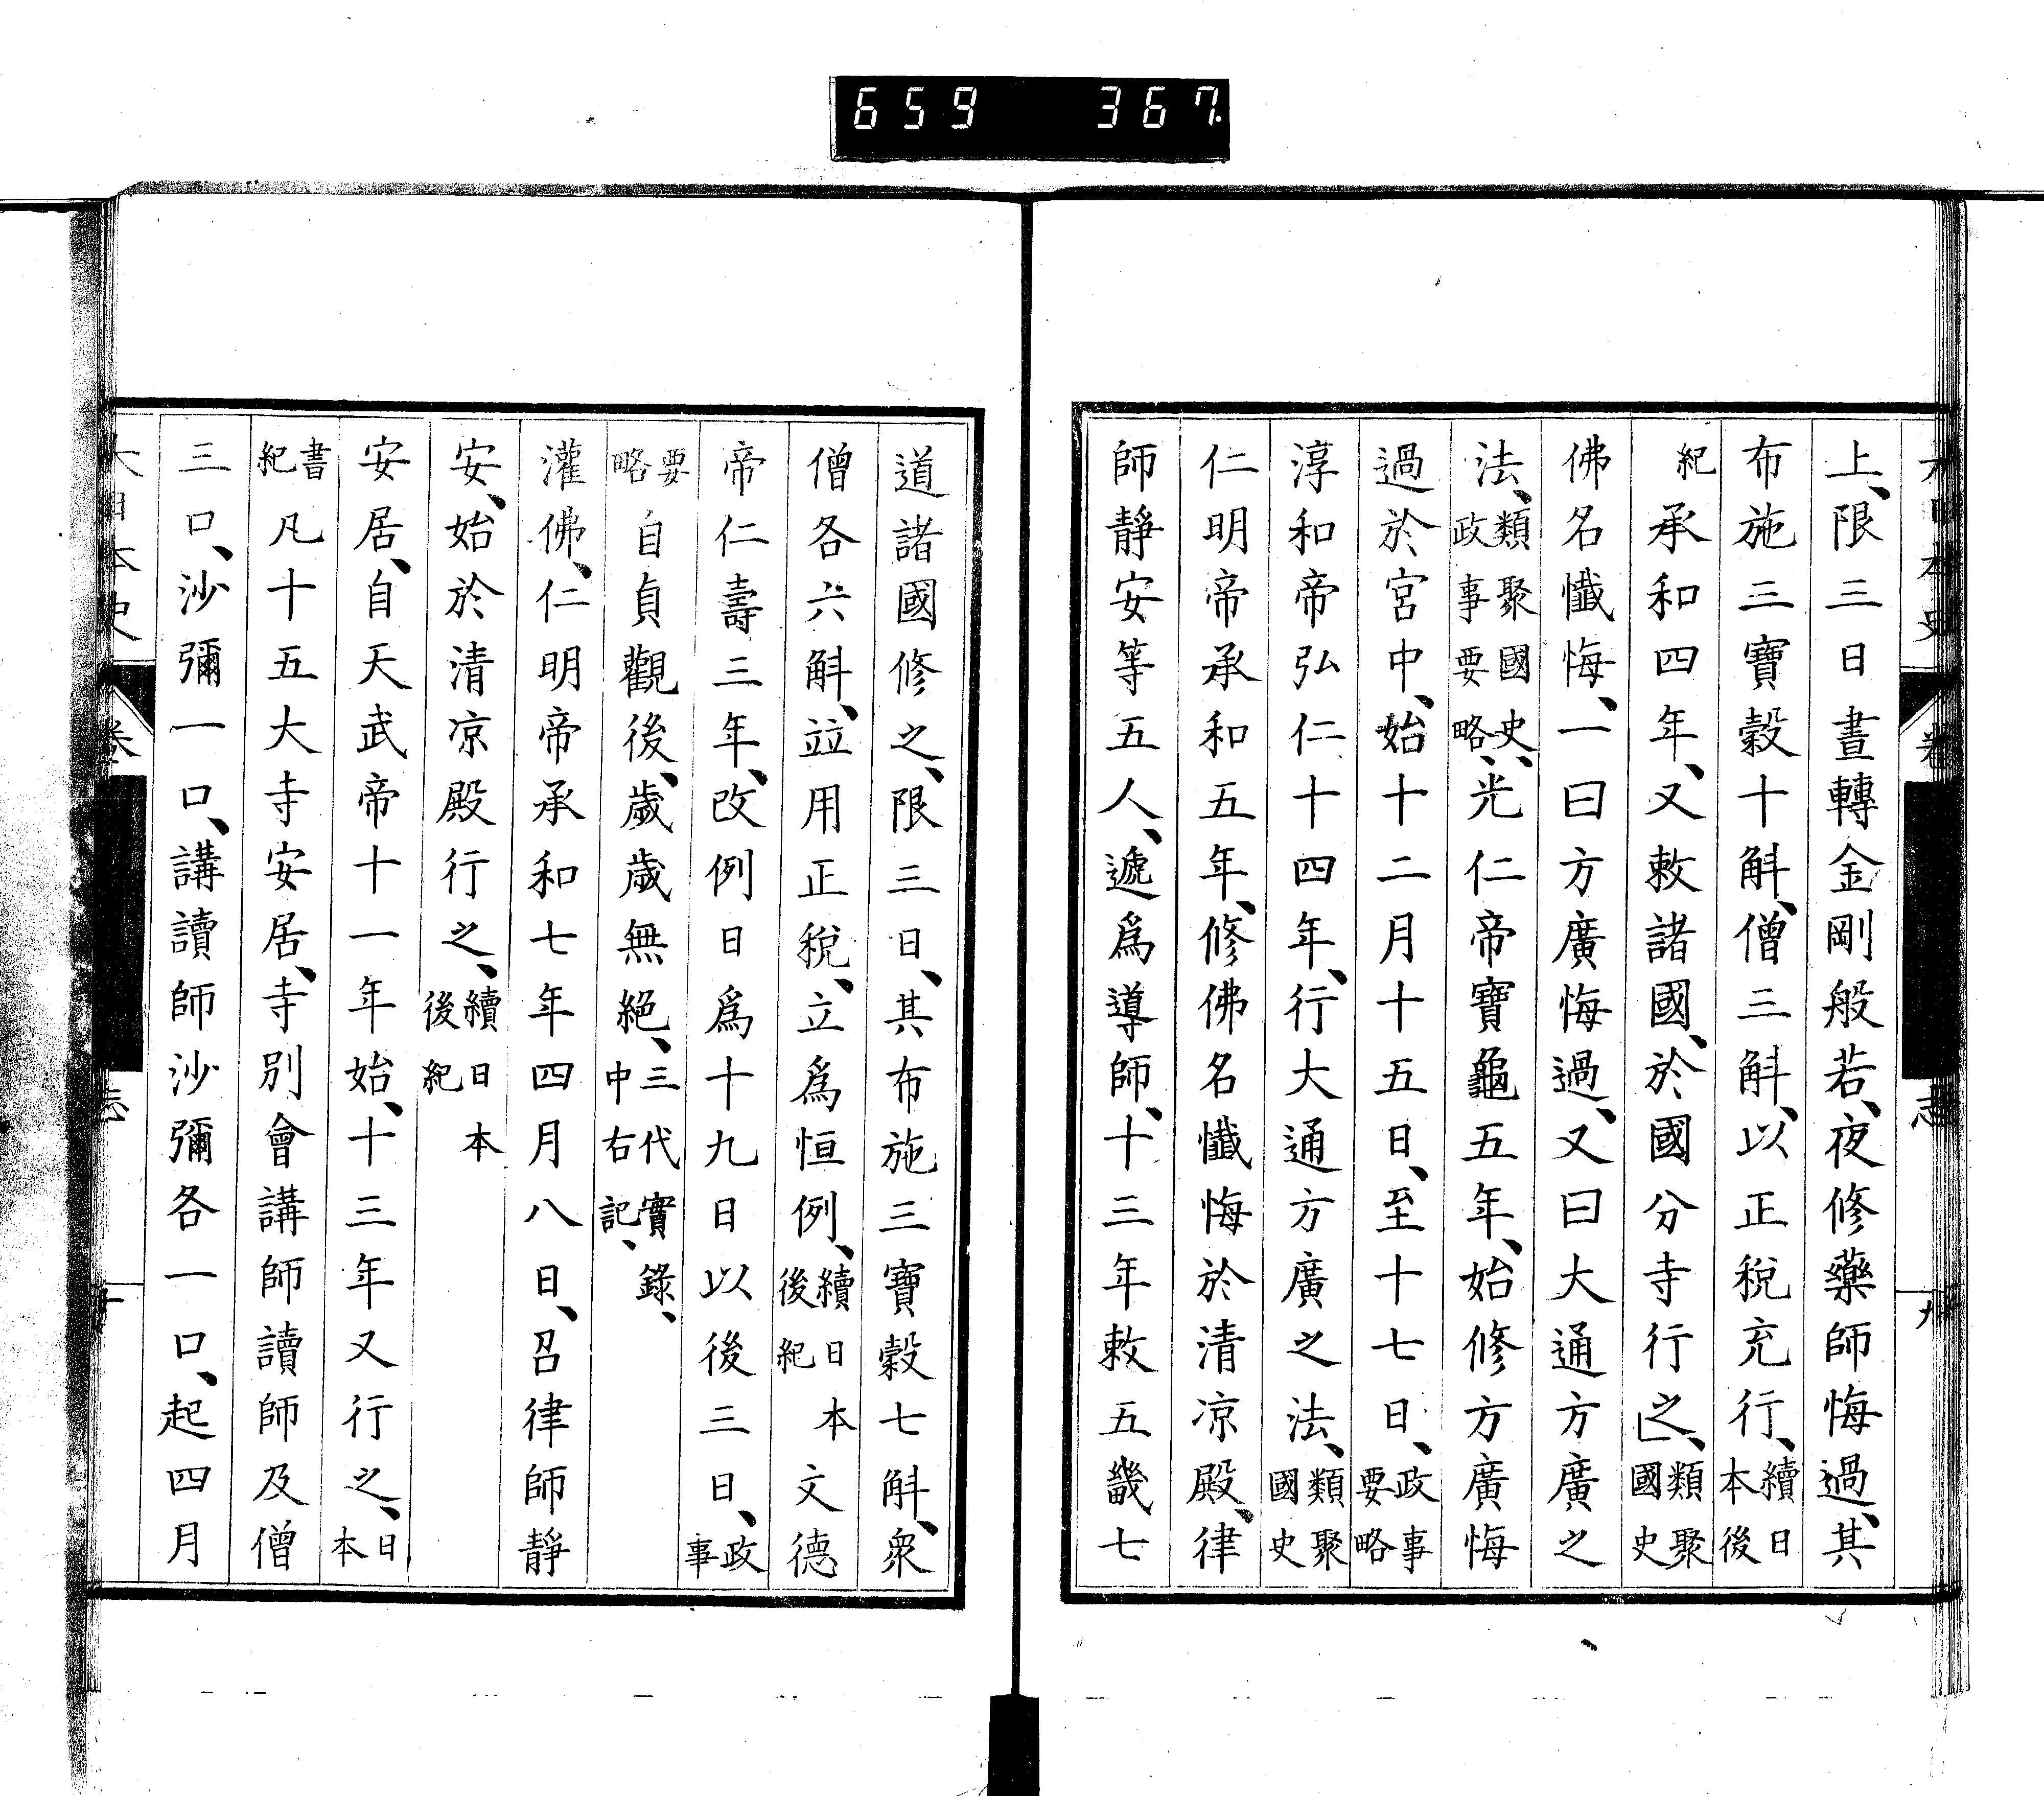 659 367.
大日本史 卷 志 九
上、限三日晝轉金剛般若、夜修藥師悔過、其
布施三寶穀十斛、僧三斛、以正稅充行、續日本後
紀承和四年、又敕諸國、於國分寺行之、類聚國史
佛名懺悔、一曰方廣悔過、又曰大通方廣之
法、類聚國史、政事要略、光仁帝寶龜五年、始修方廣悔
過於宮中、始十二月十五日、至十七日、政事要略
淳和帝弘仁十四年、行大通方廣之法、類聚國史
仁明帝承和五年、修佛名懺悔於清凉殿、律
師靜安等五人、遞爲導師、十三年敕五畿七
道諸國修之、限三日、其布施三寶穀七斛、衆
僧各六斛、竝用正稅、立爲恒例、續日本後紀文德
帝仁壽三年、改例日爲十九日以後三日、政事
要略自貞觀後、歲歲無絕、三代實錄、中右記、
灌佛、仁明帝承和七年四月八日、召律師靜
安、始於清凉殿行之、續日本後紀
安居、自天武帝十一年始、十三年又行之、日本
書紀凡十五大寺安居、寺別會講師讀師及僧
三口、沙彌一口、講讀師沙彌各一口、起四月
大日本史 卷 志 十